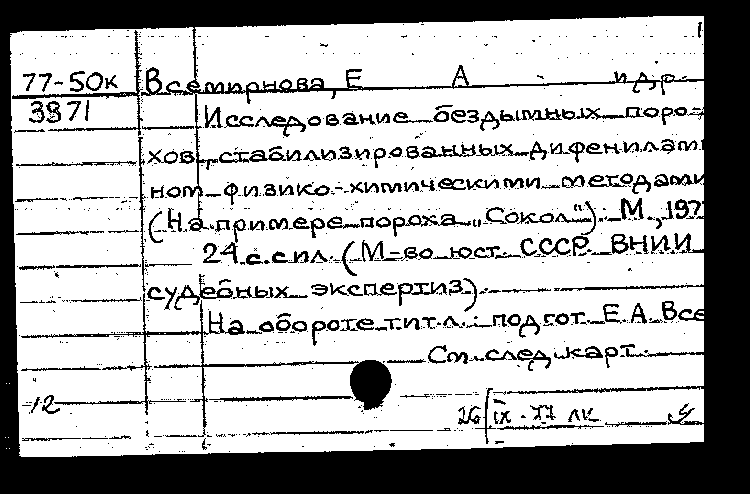 77-50к Всемирнова, Е А и др.
3971
Исследование бездымных поро-
хов, стабилизированных дифенилами
ном физико-химическими методами
(На примере пороха „Сокол"). М., 197
24 с. с ил. (М-во юст. СССР. ВНИИ
судебных экспертиз).
На обороте тит. л.: подгот. Е. А. Все
См. след. карт.
12
26 IX-77 лк